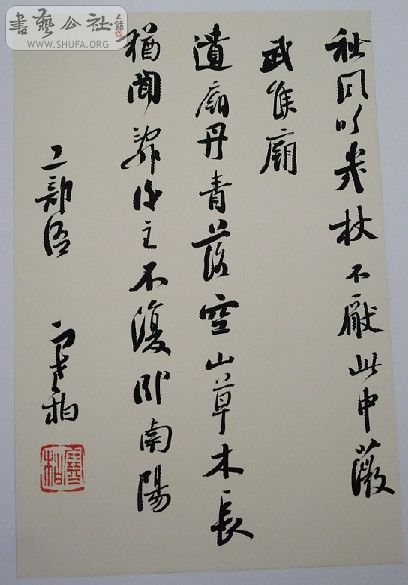 書藝公社
WWW.SHUFA.ORG
秋風吹幾杖不厭此薇
武侯廟
遺廟丹青落空山草木長
猶聞辭後主不復臥南陽
工部詩